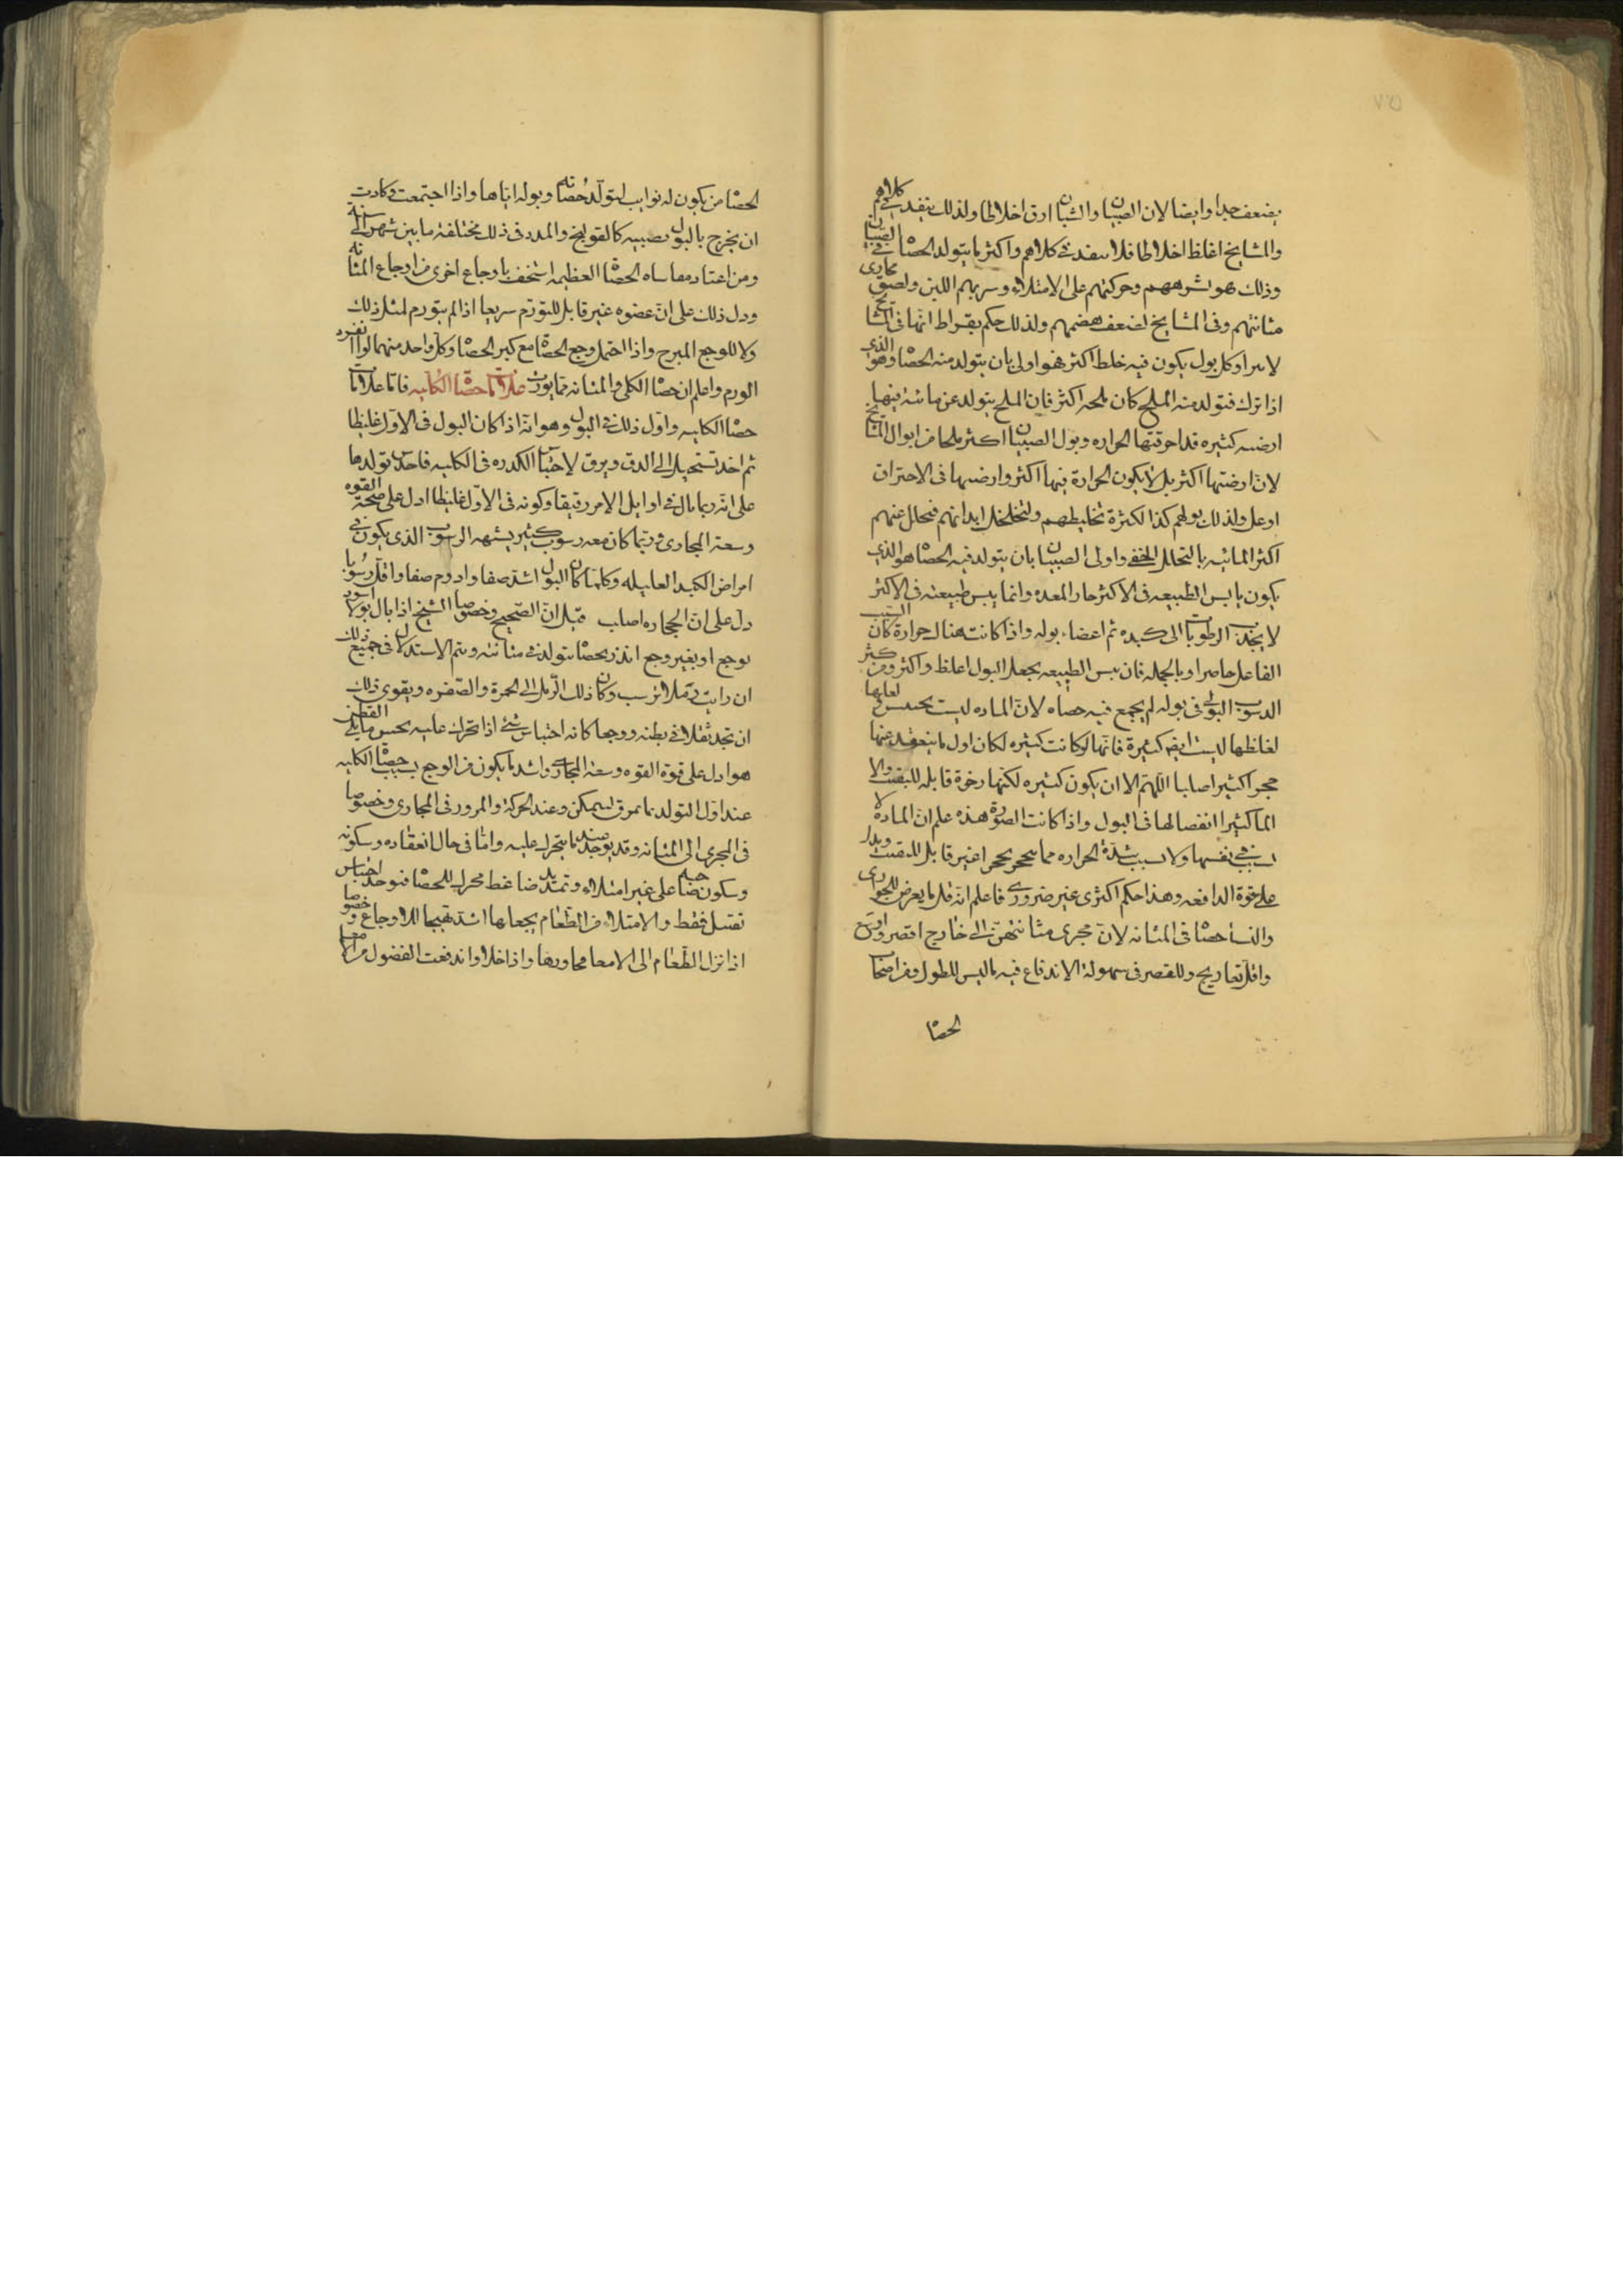 يضعف جدا وايضا لان الصبيان والشبان ارق اخلاطا ولذلك ينفد في كلاهم
والمشايخ اغلظ اخلاطا فلا ينفد في كلاهم واكثر ما يتولد الحصا في الصبيان
وذلك هو لشرههم وحركتهم على الامتلاء وشربهم اللبن ولضيق مجارى
مثانتهم وفى المشايخ لضعف هضمهم ولذلك حكم بقراط انها فى المشايخ
لا تبرا وكل بول يكون فيه خلط اكثر فهو اولى بان يتولد منه الحصا وهو الذي
اذا ترك فتولد منه الملح كان ملحه اكثر فان الملح يتولد عن مائية فيها
ارضيه كثيره قد احرقتها الحراره وبول الصبيان اكثر ملحا من ابوال المشايخ
لان ارضيتها اكثر بل لا يكون الحرارة فيها اكثر وارضيها فى الاحتراق
اوغل ولذلك بولهم كدا لكثرة تخليطهم ولتخلخل ابدانهم فيحلل عنهم
اكثر المائيه بالتحلل الخفي واولى الصبيان بان يتولد فيه الحصا هو الذي
يكون يابس الطبيعه فى الاكثر حار المعده وانما يبس طبيعته فى الاكثر
لا يجذب الرطوبات الى كبده ثم اعضاء بوله واذا كانت هناك حرارة كان السبب
الفاعل حاضرا وبالجمله فان يبس الطبيعه يجعل البول اغلظ واكثر ومن كثر
الرسوب الرملى فى بوله لم يجمع فيه حصاه لان الماده ليست تحتبس لعلها
لغلظها ليست ايضا كثيرة فانها لو كانت كثيره لكان اول ما ينعقد عنها
حجرا كثيرا صلبا اللهم الا ان يكون كثيره لكنها رخوة قابله للتفتت والا
لما كثيرا انفصالها فى البول واذا كانت الصورة هذه علم ان المادة لا
فى نفسها ولا بسبب شدة الحراره مما يتحجر تحجرا غير قابل للتفتت ويدل
على قوة الدافعه وهذا حكم اكثرى غير ضرورى فاعلم انه قل ما يعرض للجوارى
والنسا حصا فى المثانه لان مجرى مثانتهن الى خارج اقصر واوسع
واقل تعاريج وللقصر فى سهولة الاندفاع فيه ما ليس للطول ومن اصحاب
الحصا
الحصا من يكون له نوايب لتولد حصاته وبوله اياها واذا اجتمعت وكادت
ان يخرج بالبول يصيبه كالقولنج والمدد فى ذلك مختلفة ما بين شهر الى سنة
ومن اعتاد مقاساه الحصا العظيمه استخف باوجاع اخرى من اوجاع المثانه
ودل ذلك على ان عضوه غير قابل للتورم سريعا اذا لم يتورم لمثل ذلك
ولا للوجع المبرح واذا احتمل وجع الحصا مع كبر الحصا وكل واحد منهما لو انفرد
الورم واعلم ان حصا الكلى والمثانه مما يورث علامات حصا الكليه فاما علامات
حصا الكليه واول ذلك فى البول وهو انه اذا كان البول فى الاول غليظا
ثم اخذ تستحيل الى الدق ويرق لاحتباس الكدره فى الكليه فاحدس تولدها
على انه ربما بال فى اوايل الامر رقيقا وكونه فى الاول غليظا ادل على صحة القوه
وسعة المجارى وربما كان معه رسوب كثير يشبه الرسوب الذى يكون فى
امراض الكبد العليله وكلما كان البول اشد صفا وادوم صفا واقل رسوبا
دل على ان الحجاره اصلب قيل ان الصحيح وخصوصا الشيخ اذا بال بولا اسود
بوجع او بغير وجع انذر بحصا يتولد فى مثانته ويتم الاستدلال فى جميع ذلك
ان رايت رملا يرسب وكان ذلك الرمل الى الحمرة والصفره ويقوى ذلك
ان تجد ثقلا فى بطنه ووجعا كانه احتباس شئ اذا تحرك عليه يحس مما يلى القطن
هو ادل على قوة القوه وسعة المجارى واشد ما يكون من الوجع بسبب حصا الكليه
عند اول التولد بما تمزق ليتمكن وعند الحركة والمرور فى المجارى وخصوصا
فى المجرى الى المثانه وقد يوجد عند ما يتحرك عليه واما فى حال انعقاده وسكونه
وسكون صاحبه على غير امتلاء وتمدد ضاغط محرك للحصا فيوجد احتباس
ثقيل فقط والامتلاء من الطعام يجعلها اشد تهيجا للاوجاع وخصوصا
اذا نزل الطعام الى الامعا مجاورها واذا خلا واندفعت الفضول من الامعا